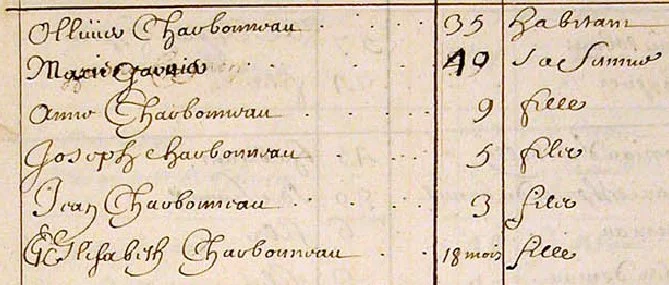 Ollivier Charbonneau 35 habitant
Marie Garnier 40 sa femme
Anne Charbonneau 9 fille
Joseph Charbonneau 5 filz
Jean Charbonneau 3 filz
Elisabeth Charbonneau 18 mois fille